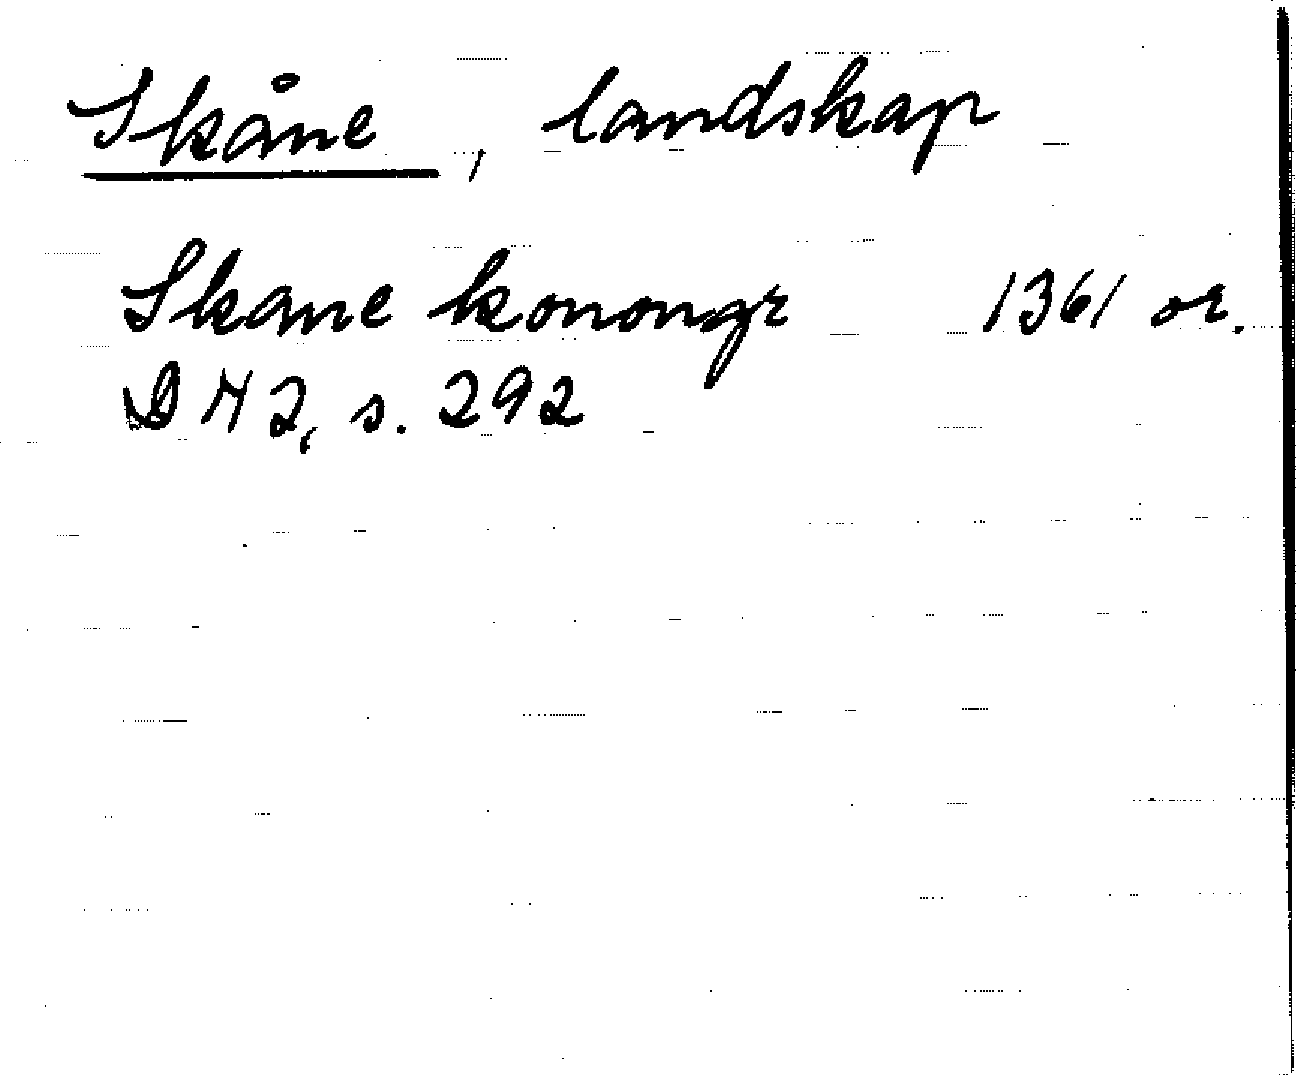 Skåne, landskap
Skane konongr 1361 or.
DN 2, s. 292